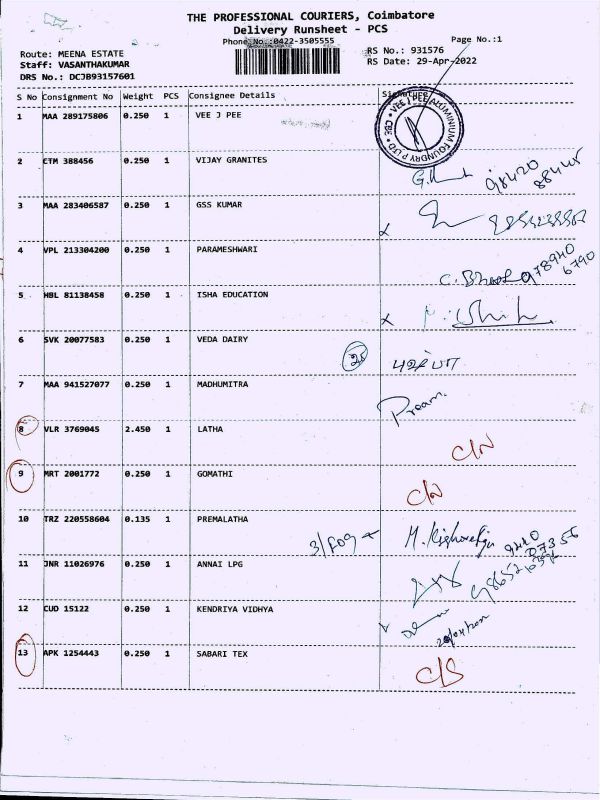 THE PROFESSIONAL COURIERS, Coimbatore
Delivery Runsheet - PCS
Phone No.:0422-3505555
Page No.:1
Route: MEENA ESTATE
Staff: VASANTHAKUMAR
DRS No.: DCJB93157601
RS No.: 931576
RS Date: 29-Apr-2022
S No Consignment No Weight PCS Consignee Details Signature
VEE J PEE ALUMINIUM FOUNDRY P LTD CBE
1 MAA 289175806 0.250 1 VEE J PEE
2 CTM 388456 0.250 1 VIJAY GRANITES
98420
88445
3 MAA 283406587 0.250 1 GSS KUMAR
4 VPL 213304200 0.250 1 PARAMESHWARI
978940
6790
5 HBL 81138458 0.250 1 ISHA EDUCATION
6 SVK 20077583 0.250 1 VEDA DAIRY
புஷ்பா
7 MAA 941527077 0.250 1 MADHUMITRA
8 VLR 3769045 2.450 1 LATHA
C/N
9 MRT 2001772 0.250 1 GOMATHI
C/N
10 TRZ 220558604 0.135 1 PREMALATHA
11 JNR 11026976 0.250 1 ANNAI LPG
12 CUD 15122 0.250 1 KENDRIYA VIDHYA
13 APK 1254443 0.250 1 SABARI TEX
C/S